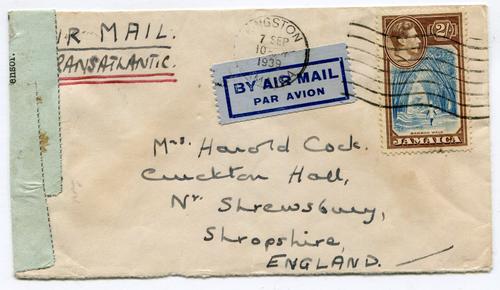 AIR MAIL.
TRANSATLANTIC.
ensor.
KINGSTON
7 SEP
10
1939
JAMAICA
2/-
BY AIR MAIL
PAR AVION
BAMBOO WALK
JAMAICA
Mrs. Harold Cock.
Cruckton Hall,
Nr. Shrewsbury,
Shropshire,
ENGLAND.